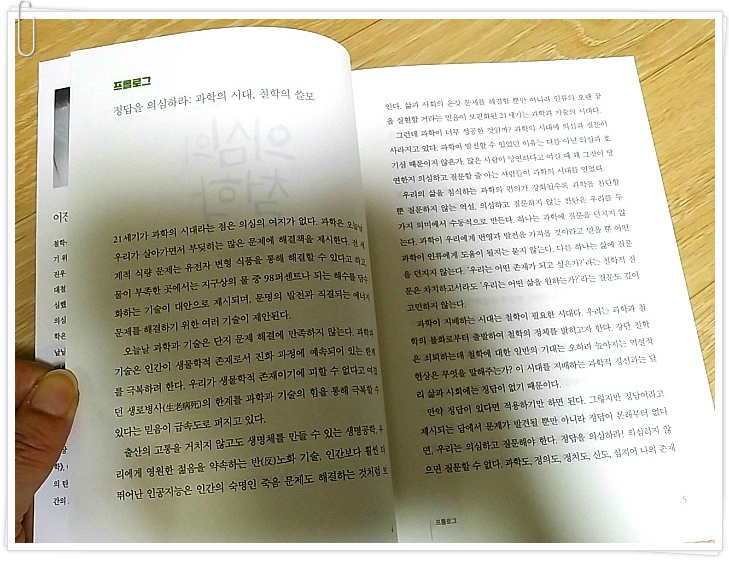 프롤로그
정답을 의심하라: 과학의 시대, 철학의 쓸모
21세기가 과학의 시대라는 점은 의심의 여지가 없다. 과학은 오늘날
우리가 살아가면서 부딪히는 많은 문제에 해결책을 제시한다. 전 세
계적 식량 문제는 유전자 변형 식품을 통해 해결할 수 있다고 하고,
물이 부족한 곳에서는 지구상의 물 중 98퍼센트나 되는 해수를 담수
화하는 기술이 대안으로 제시되며, 문명의 발전과 직결되는 에너지
문제를 해결하기 위한 여러 기술이 제안된다.
오늘날 과학과 기술은 단지 문제 해결에 만족하지 않는다. 과학과
기술은 인간이 생물학적 존재로서 진화 과정에 예속되어 있는 한계
를 극복하려 한다. 우리가 생물학적 존재이기에 피할 수 없다고 여겼
던 생로병사(生老病死)의 한계를 과학과 기술의 힘을 통해 극복할 수
있다는 믿음이 급속도로 퍼지고 있다.
출산의 고통을 거치지 않고도 생명체를 만들 수 있는 생명공학, 우
리에게 영원한 젊음을 약속하는 반(反)노화 기술, 인간보다 훨씬 더
뛰어난 인공지능은 인간의 숙명인 죽음 문제도 해결하는 것처럼 보
인다. 삶과 사회의 온갖 문제를 해결할 뿐만 아니라 인류의 오랜 꿈
을 실현할 거라는 믿음이 보편화된 21세기는 과학과 기술의 시대다.
그런데 과학이 너무 성공한 것인가? 과학의 시대에 의심과 질문이
사라지고 있다. 과학이 발전할 수 있었던 이유는 다름 아닌 의심과 호
기심 때문이지 않은가. 많은 사람이 당연하다고 여길 때 왜 그것이 당
연한지 의심하고 질문할 줄 아는 사람들이 과학의 시대를 열었다.
우리의 삶을 침식하는 과학의 편의가 강화될수록 과학을 찬탄할
뿐 질문하지 않는 역설. 의심하고 질문하지 않는 찬탄은 우리를 두
가지 의미에서 수동적으로 만든다. 하나는 과학에 질문을 던지지 않
는다. 과학이 우리에게 번영과 발전을 가져올 것이라고 믿을 뿐 어떤
과학이 인류에게 도움이 될지는 묻지 않는다. 다른 하나는 삶에 질문
을 던지지 않는다. '우리는 어떤 존재가 되고 싶은가?'라는 철학적 질
문은 차치하고서라도 '우리는 어떤 삶을 원하는가?'라는 질문도 깊이
고민하지 않는다.
과학이 지배하는 시대는 철학이 필요한 시대다. 우리는 과학과 철
학의 불화로부터 출발하여 철학의 정체를 밝히고자 한다. 강단 철학
은 쇠퇴하는데 철학에 대한 일반의 기대는 오히려 높아지는 역설적
현상은 무엇을 말해주는가? 이 시대를 지배하는 과학적 정신과는 달
리 삶과 사회에는 정답이 없기 때문이다.
만약 정답이 있다면 적용하기만 하면 된다. 그렇지만 정답이라고
제시되는 답에서 문제가 발견될 뿐만 아니라 정답이 본래부터 없다
면, 우리는 의심하고 질문해야 한다. 정답을 의심하라! 의심하지 않
으면 질문할 수 없다. 과학도, 정의도, 정치도, 신도, 심지어 나의 존재
5
프롤로그